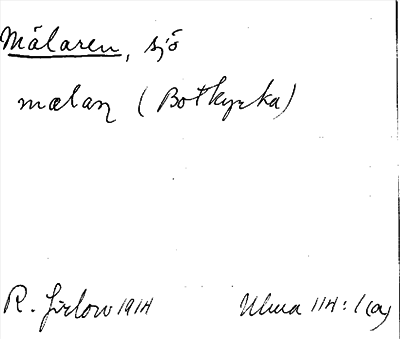 Mälaren, sjö
mælaꞃ (Botkyrka)
R. Jirlow 1914 Ulma 114:1(a)